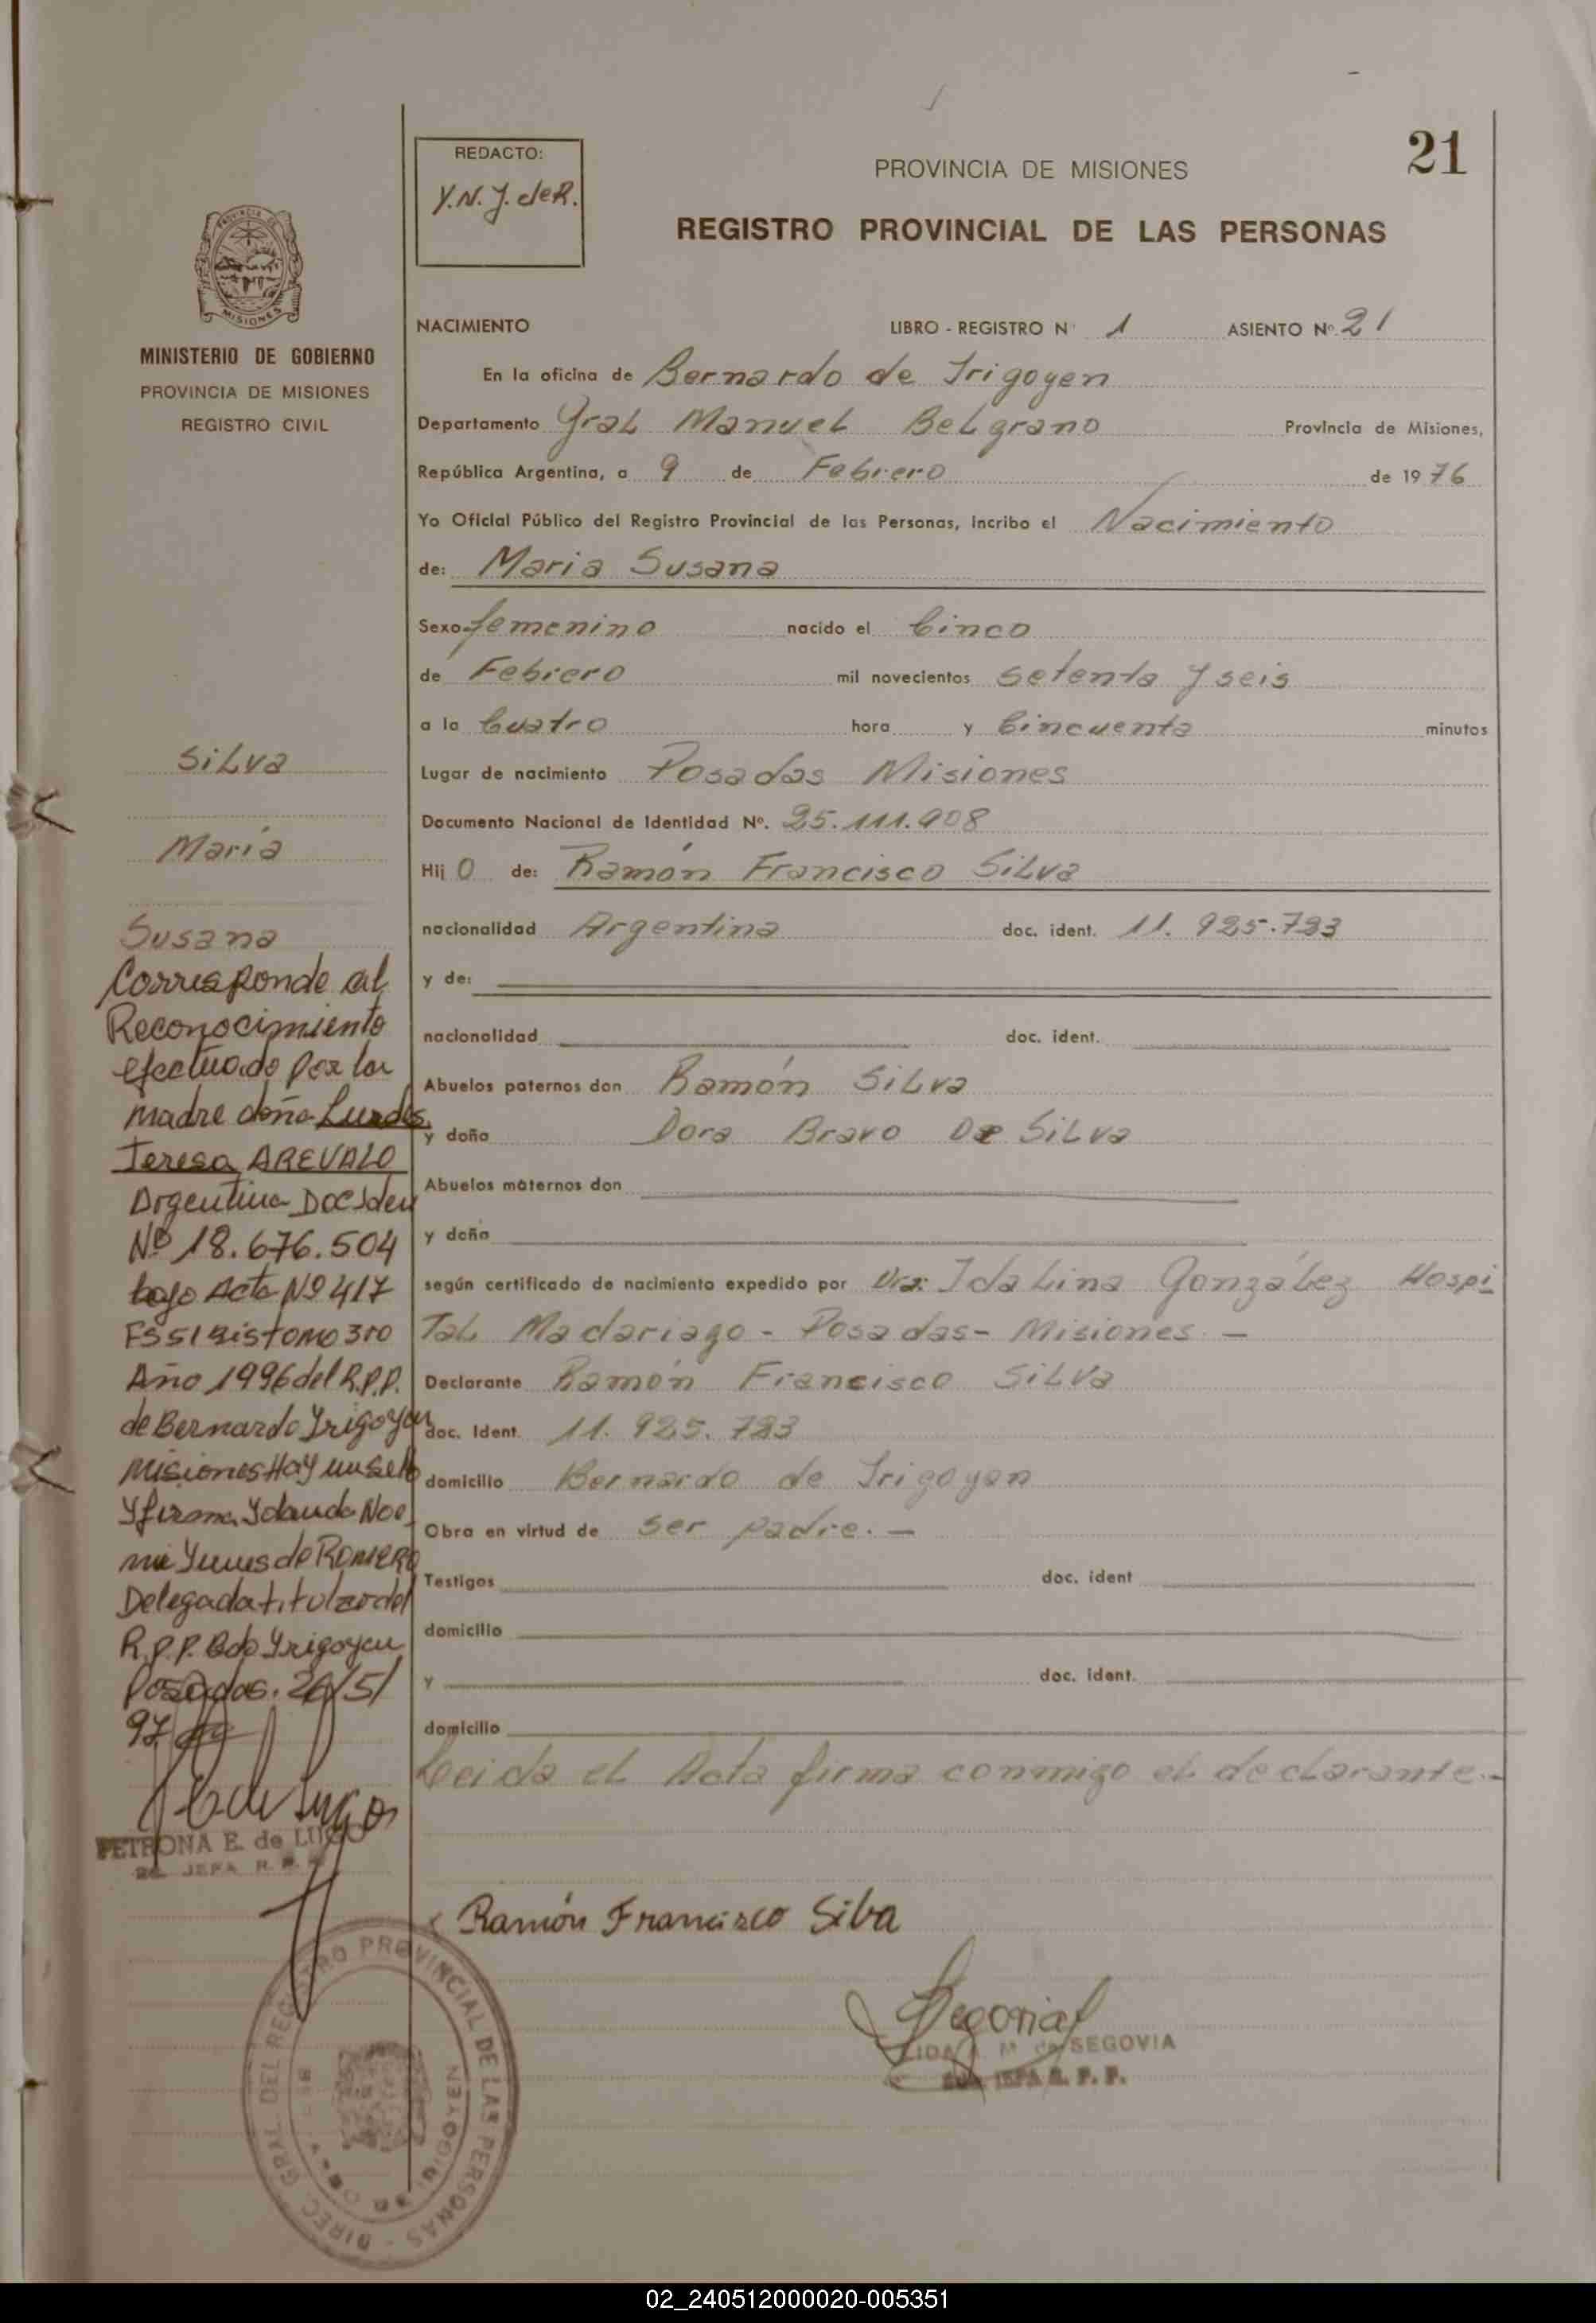 21
REDACTO:
Y.N.J. de R.
PROVINCIA DE MISIONES
REGISTRO PROVINCIAL DE LAS PERSONAS
MISIONES
MINISTERIO DE GOBIERNO
PROVINCIA DE MISIONES
REGISTRO CIVIL
NACIMIENTO LIBRO - REGISTRO Nº 1 ASIENTO Nº 21
En la oficina de Bernardo de Irigoyen
Departamento Gral Manuel Belgrano Provincia de Misiones,
República Argentina, a 9 de Febrero de 1976
Yo Oficial Público del Registro Provincial de las Personas, incribo el Nacimiento
de: Maria Susana
Sexo femenino nacido el Cinco
de Febrero mil novecientos setenta y seis
a la Cuatro hora y Cincuenta minutos
Lugar de nacimiento Posadas Misiones
Documento Nacional de Identidad Nº. 25.111.908
Hij O de: Ramón Francisco Silva
nacionalidad Argentina doc. ident. 11.925.783
y de:
nacionalidad doc. ident.
Abuelos paternos don Ramón Silva
y doña Dora Bravo De Silva
Abuelos maternos don
y doña
según certificado de nacimiento expedido por Dra: Ida Lina González Hospi
tal Madariago - Posadas - Misiones. -
Declarante Ramón Francisco Silva
doc. Ident. 11.925.783
domicilio Bernardo de Irigoyen
Obra en virtud de ser padre. -
Testigos doc. ident
domicilio
y doc. ident.
domicilio
Leida el Acta firma conmigo el declarante.-
Ramón Francisco Silva
Segovia
M de SEGOVIA
JEFA R. P. P.
Silva
María
Susana
Corresponde al
Reconocimiento
efectuado por la
madre doña Lurdes
Teresa AREVALO
Argentina Doc Iden
Nº 18.676.504
bajo Acta Nº 417
FS 51 Bis tomo 3ro
Año 1996 del R.P.P.
de Bernardo Irigoyen
Misiones Hay un sello
y firma Yolanda Noe
mi Yunes de ROMERO
Delegada titular del
R.P.P. Bdo Irigoyen
Posadas. 26/5/
97
PETRONA E. de LUGO
JEFA R. P.
DIREC. GRAL. DEL REGISTRO PROVINCIAL DE LAS PERSONAS
02_240512000020-005351